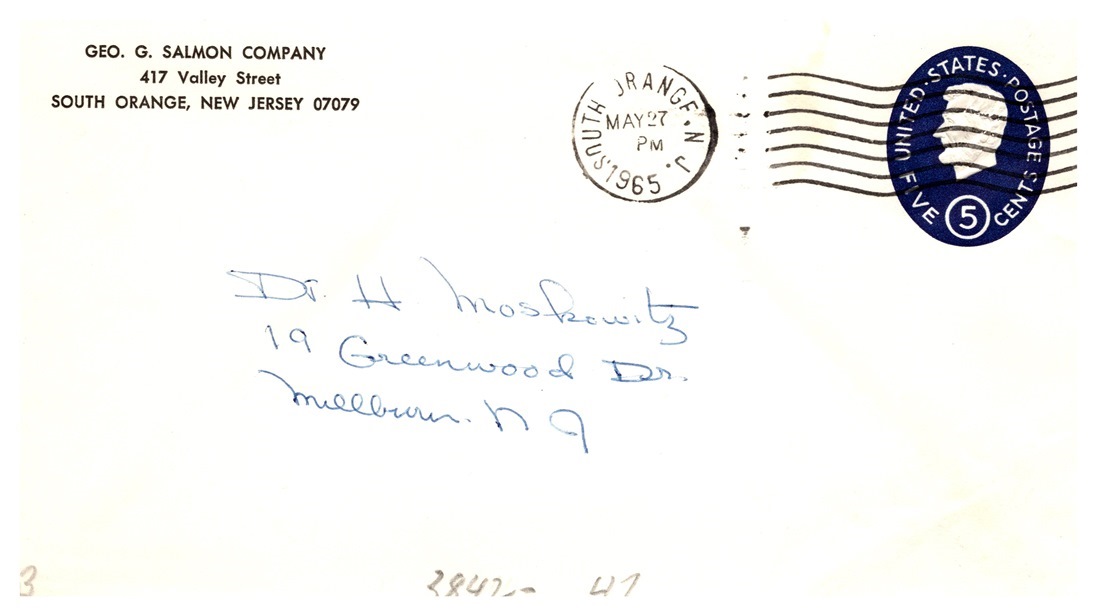 GEO. G. SALMON COMPANY
417 Valley Street
SOUTH ORANGE, NEW JERSEY 07079
SOUTH ORANGE, N.J.
MAY 27
PM
1965
UNITED · STATES · POSTAGE
FIVE 5 CENTS
Dr. H Moskowitz
19 Greenwood Dr.
Millburn. N J
3
47